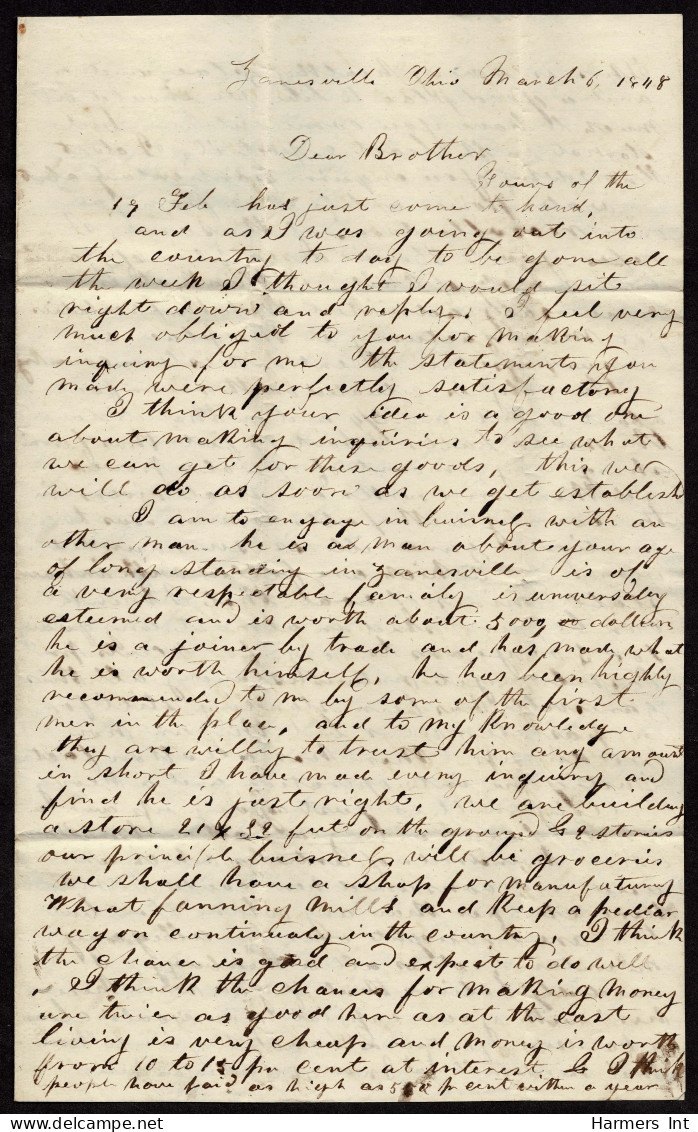 Zanesville Ohio March 6, 1848
Dear Brother
Yours of the
19 Feb has just come to hand,
and as I was going out into
the country to day to be gone all
the week I thought I would sit
right down and reply, I feel very
much obliged to you for making
inquiry for me the statements you
made were perfectly satisfactory
I think your idea is a good one
about making inquiries to see what
we can get for these goods, this we
will do as soon as we get establish
I am to engage in buisness with an
other man he is a man about your age
of long standing in Zanesville is of
a very respectable family is universaly
esteemed and is worth about 5000, dollars
he is a joiner by trade and has made what
he is worth himself, he has been highly
recommended to me by some of the first
men in the place, and to my knowledge
they are willing to trust him any amount
in short I have made every inquiry and
find he is just right, we are building
a store 21 x 32 feet on the ground & 2 stories
our principle buisness will be groceries
we shall have a shop for manufaturing
Wheat fanning Mills and keep a pedlar
wagon continualy in the country, I think
the chance is good and expect to do well
I think the chances for making money
are twice as good here as at the east
living is very cheap and money is worth
from 10 to 15 pr cent at interest & I think
people have paid as high as pr cent within a year
Harmers Int